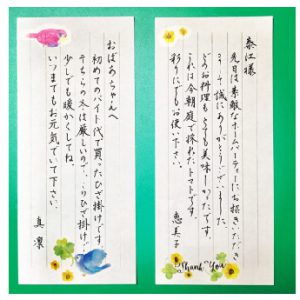 泰江様
先日は素敵なホームパーティーにお招きいただき
誠にありがとうございました。
どのお料理もとても美味しかったです。
これは今朝庭で採れたトマトです。
彩りにでもお使い下さい。
恵美子
Thank You
おばあちゃんへ
初めてのバイト代で買ったひざ掛けです。
そちらの冬は厳しいので、このひざ掛けで
少しでも暖かくしてね。
いつまでもお元気でいて下さい。
真凛